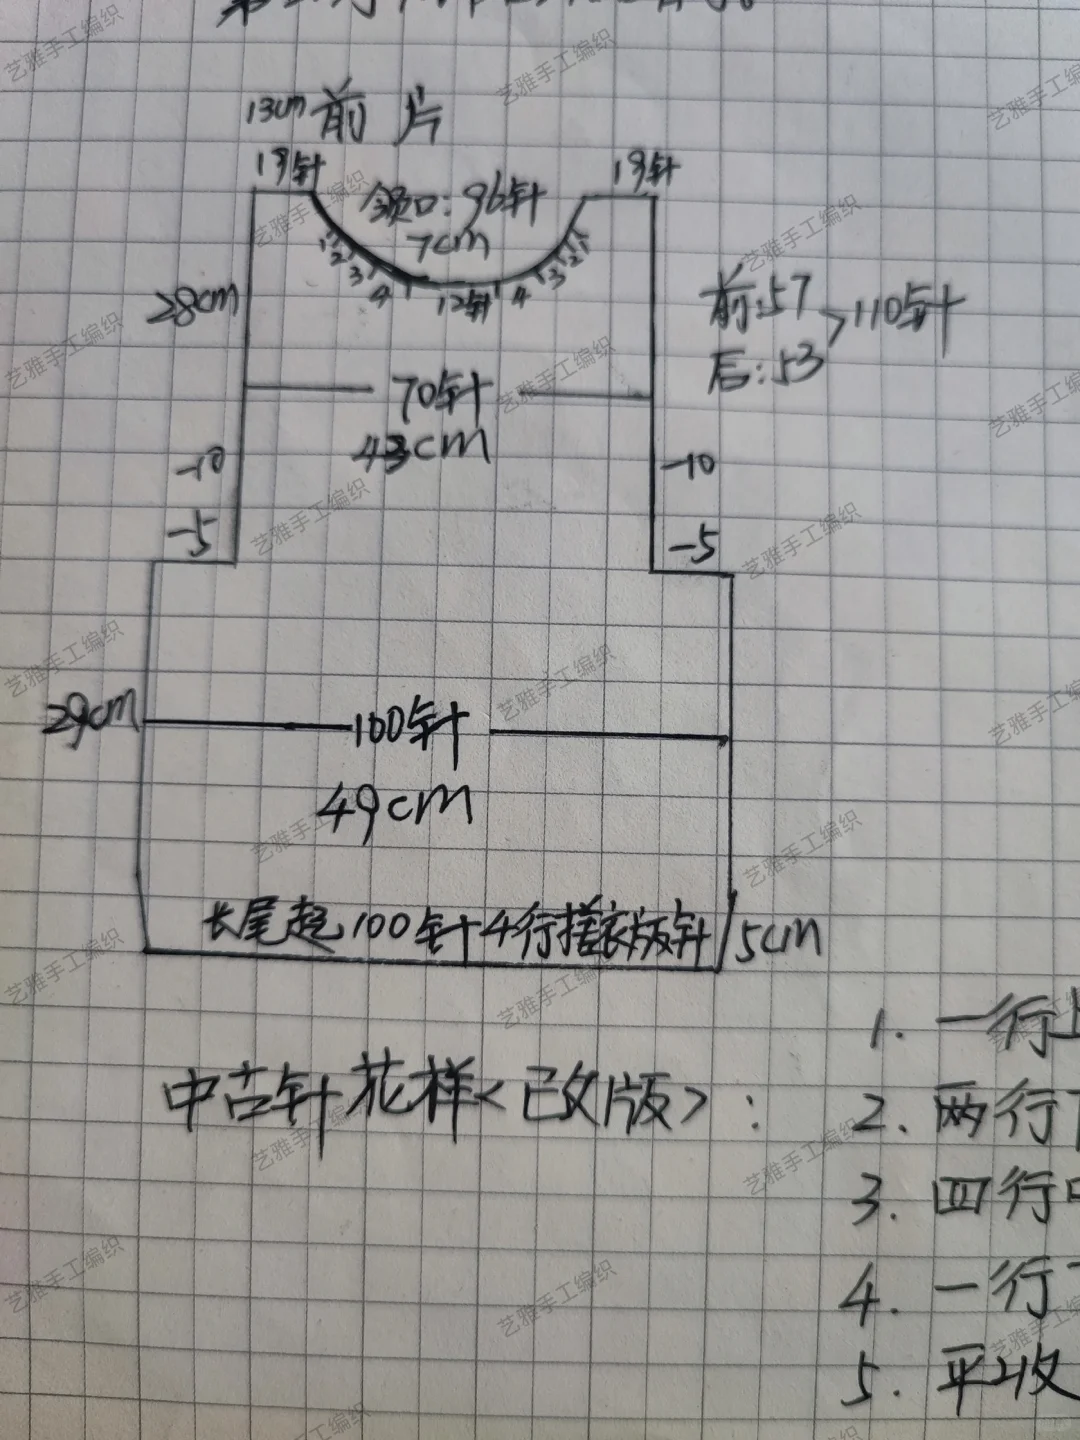 13cm 前片
19针
19针
领口:96针
7cm
1
2
3
4
12针
4
3
2
1
28cm
前:57
后:53
110针
70针
43cm
-10
-10
-5
-5
29cm
100针
49cm
长尾起100针4行搓衣版针
5cm
中古针花样<已改版>:
1. 一行上
2. 两行下
3. 四行
4. 一行下
5. 平收
艺雅手工编织